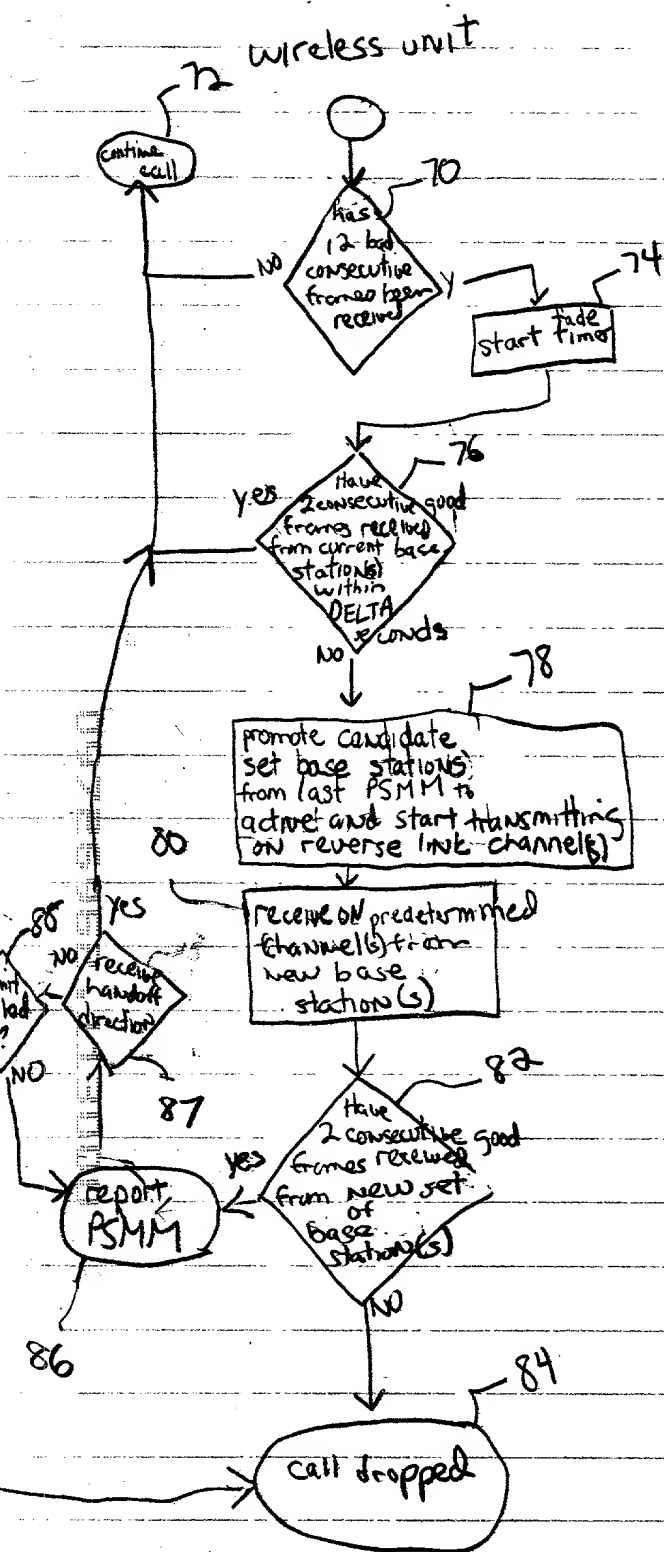 wireless unit
72
continue
call
70
has
12 bad
consecutive
frames been
received
NO
Y
74
start fade
timer
76
Have
2 consecutive good
frames received
from current base
station(s)
within
DELTA
seconds
yes
NO
78
promote candidate
set base stations)
from last PSMM to
active and start transmitting
on reverse link channel(s)
80
receive ON predetermined
channel(s) from
new base
station(s)
88
?
?
NO
yes
NO
receive
handoff
direction
87
82
Have
2 consecutive good
frames received
from new set
of
base
station(s)
yes
NO
report
PSMM
86
84
call dropped